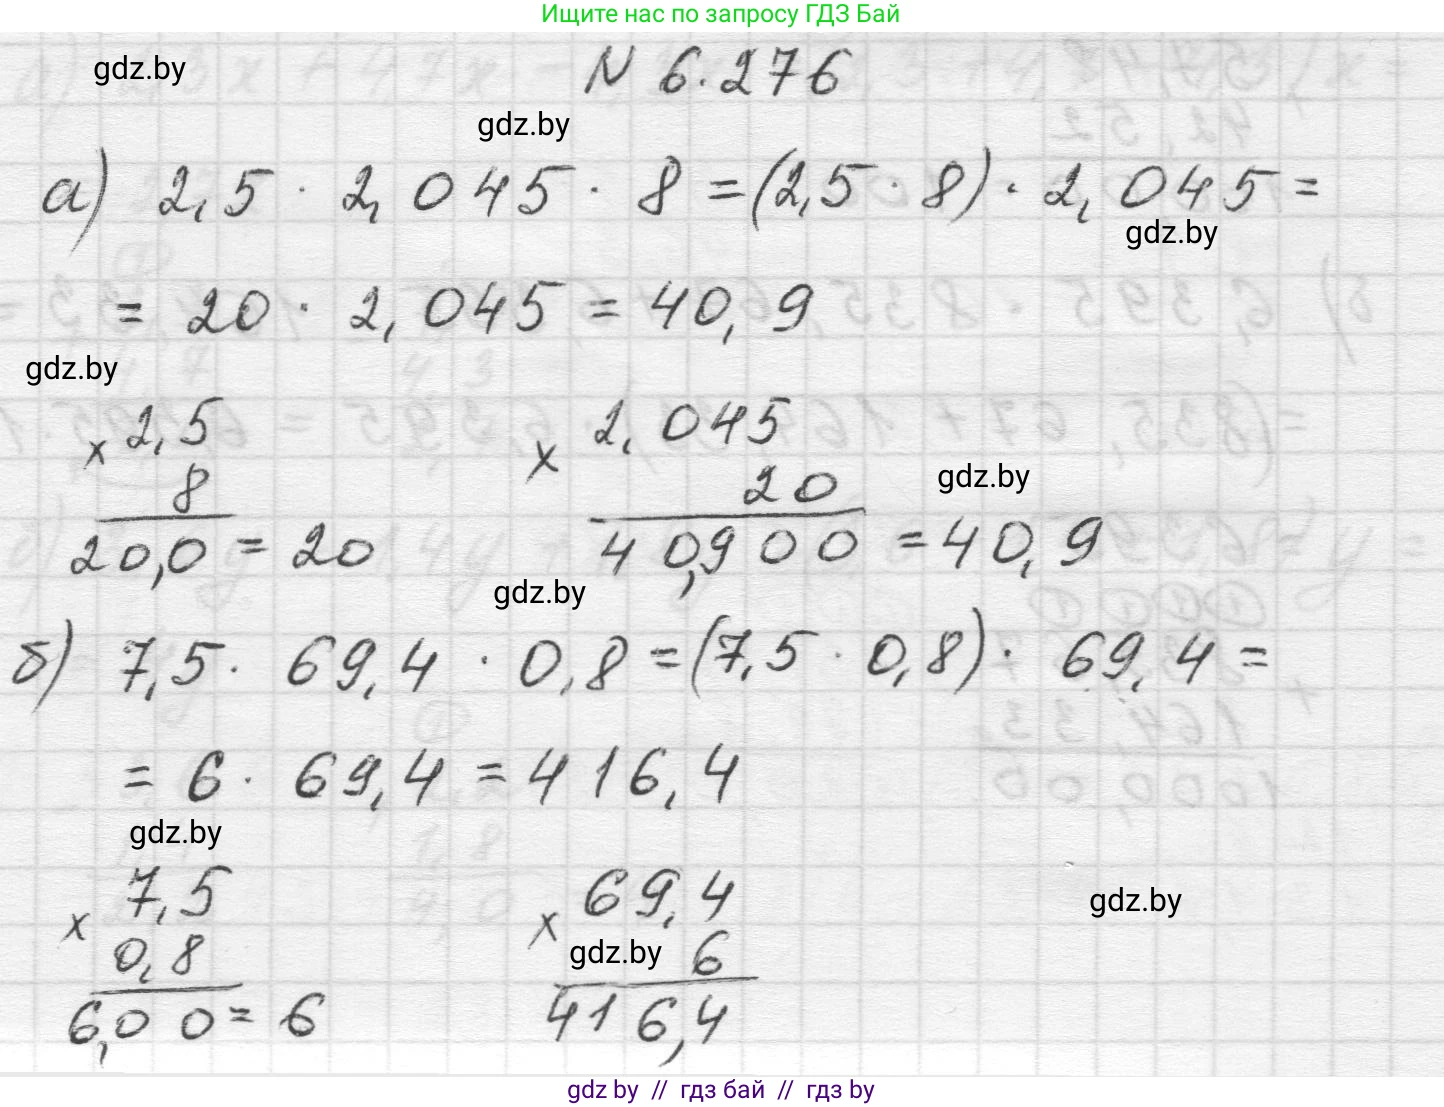 Ищите нас по запросу ГДЗ Бай
gdz.by
N 6.276
gdz.by
а) 2,5 · 2,045 · 8 = (2,5 · 8) · 2,045 =
gdz.by
= 20 · 2,045 = 40,9
gdz.by
× 2,5
8
20,0 = 20
× 2,045
20
40,900 = 40,9
gdz.by
gdz.by
б) 7,5 · 69,4 · 0,8 = (7,5 · 0,8) · 69,4 =
= 6 · 69,4 = 416,4
gdz.by
× 7,5
0,8
6,00 = 6
× 69,4
6
416,4
gdz.by
gdz.by
gdz by // гдз бай // гдз by